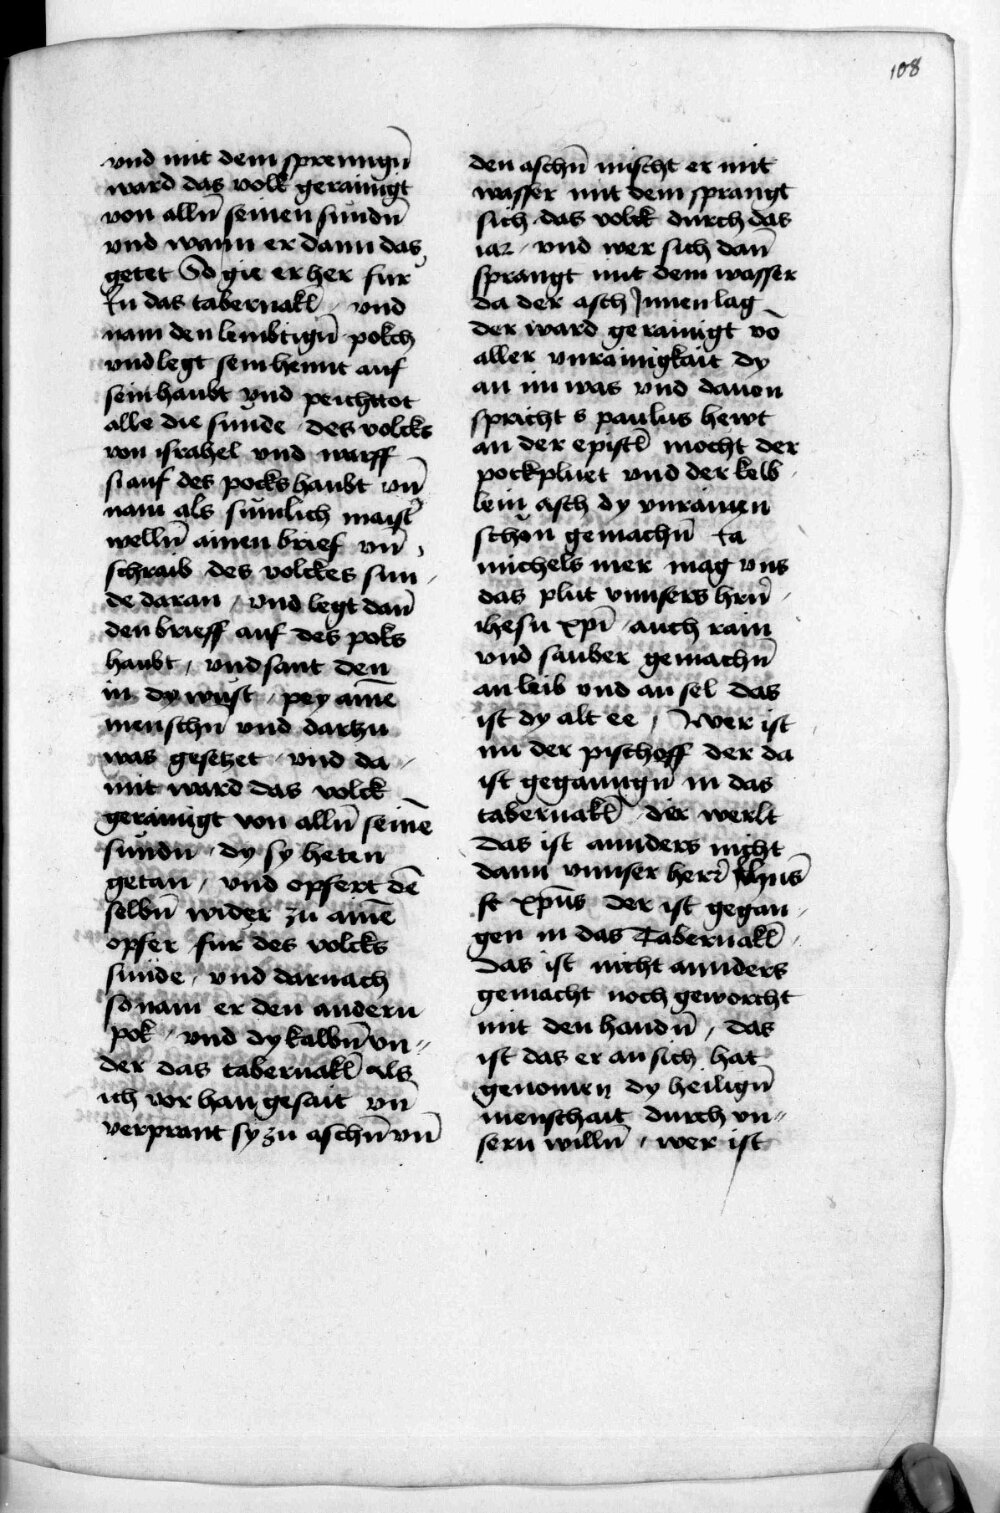 108
vnd mit dem sprennign̄
ward das volk gerainigt
von alln̄ seinen sundn̄
vnd wann er dann das
getet So gie er her fur
In das tabernakl̄ / vnd
nam den lembtign̄ polch
vnd legt sein hennt auf
sein haubt vnd peichttot
alle die sunde / des volcks
von israhel vnd warff
si auf des pocks haubt vn̄
nam als sumlich maist̄
welln̄ ainen brief vn̄
schraib des volckes sun
de daran / vnd legt dan̄
den brieff auf des poks
haubt / vnd sant den
in dy wust / pey aine̅
menschn̄ vnd dartzu
was gesetzet / vnd da
mit ward das volck
gerainigt von alln̄ seine̅
sundn̄ / dy sy heten
getan / vnd opfert de̅
selbn̄ wider zu aine̅
opfer fur des volcks
sunde / vnd darnach
so nam er den andern
pok / vnd dy kalbn̄ vn//
der das tabernakl̄ als
ich vor han gesait vn̄
verprant sy zu aschn̄ vn̄
den aschn̄ mischt er mit
wasser mit dem sprangt
sich das volck durch das
iar / vnd wer sich dan̄
sprangt mit dem wasser
da der asch Jnnen lag
der ward gerainigt vo̅
aller vnrainigkait dy
an im was vnd dauon
spricht s paulus hewt
an der epistl̄ mocht der
pockpluet vnd der kelb
lein asch dy vnrainen
schon gemachn̄ ta
michels mer mag vns
das plut vnnsers hrn̄
ihesu xp̄i / auch rain
vnd sauber gemachn̄
an leib vnd an sel das
ist dy alt ee / Wer ist
nu der pischoff der da
ist geganngn̄ in das
tabernakl̄ / der werlt
das ist annders nicht
dann vnnser her̄
xp̄us der ist gegan
gen in das Tabernakl̄
das ist nicht annders
gemacht noch geworcht
mit den handn̄ / das
ist das er an sich hat
genomen dy heilign̄
menschait durch vn//
sern willn̄ / wer ist